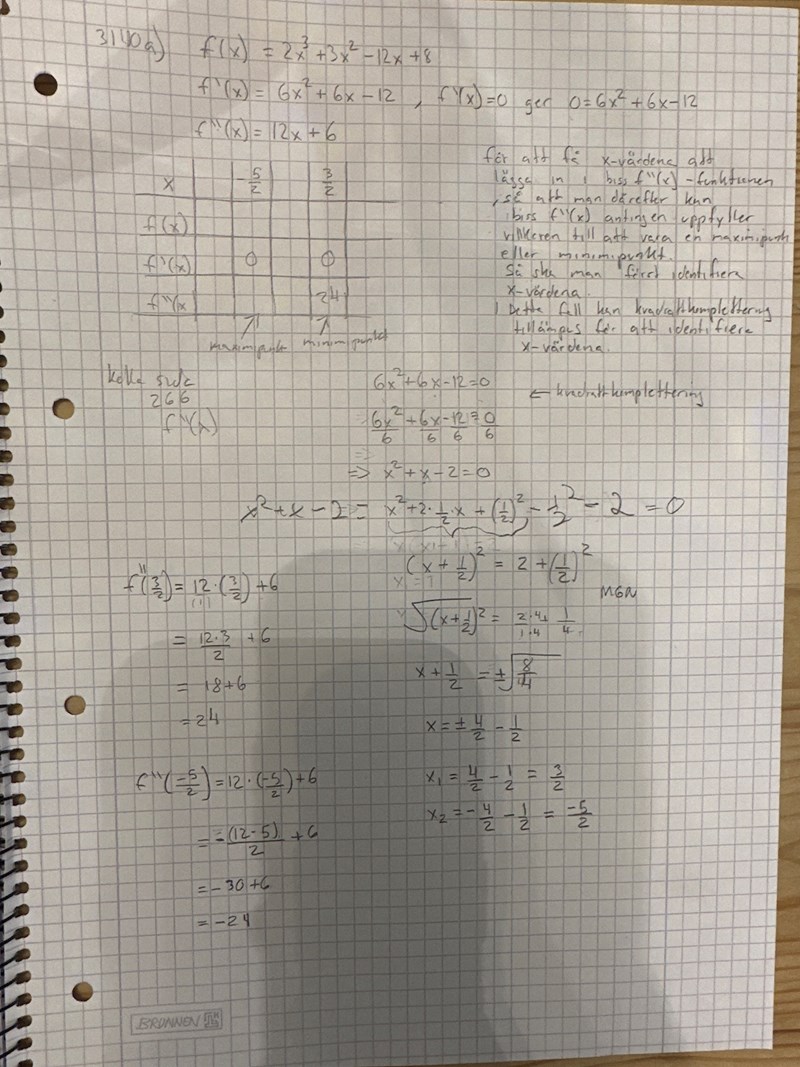 3140a) f(x) = 2x³ + 3x² - 12x + 8
f'(x) = 6x² + 6x - 12 , f'(x) = 0 ger 0 = 6x² + 6x - 12
f''(x) = 12x + 6
för att få x-värdena att
lägga in i biss f''(x) - funktionen
, så att man därefter kan
i biss f''(x) antingen uppfyller
villkoren till att vara en maximipunkt
eller minimipunkt.
Så ska man först identifiera
x-värdena.
I Detta fall kan kvadratkomplettering
tillämpas för att identifiera
x-värdena.
x -5/2 3/2
f(x)
f'(x) 0 0
f''(x 24
↑ ↑
maximipunkt minimipunkt
Kolla sida
266
f''(x)
6x² + 6x - 12 = 0 ← kvadratkomplettering
6x²/6 + 6x/6 - 12/6 = 0/6
⇒ x² + x - 2 = 0
x² + x - 2 = x² + 2 · 1/2 · x + (1/2)² - 1/2² - 2 = 0
(x + 1/2)² = 2 + (1/2)²
MGN
√(x + 1/2)² = 2·4/1·4 + 1/4
x + 1/2 = ±√8/4
x = ± 4/2 - 1/2
x₁ = 4/2 - 1/2 = 3/2
x₂ = - 4/2 - 1/2 = -5/2
f''(3/2) = 12 · (3/2) + 6
= 12·3/2 + 6
= 18 + 6
= 24
f''(-5/2) = 12 · (-5/2) + 6
= -(12·5)/2 + 6
= -30 + 6
= -24
BRUNNEN